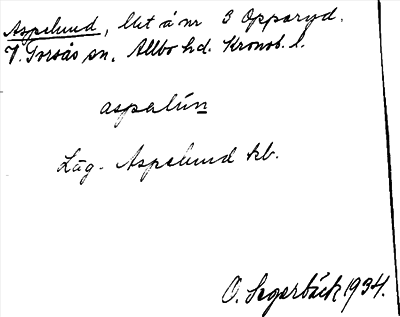 Aspelund, lht å nr 3 Opparyd.
V. Torsås sn. Allbo hd. Kronob. l.
aspalún
Läg. Aspelund kb.
O. Segerbäck 1934.